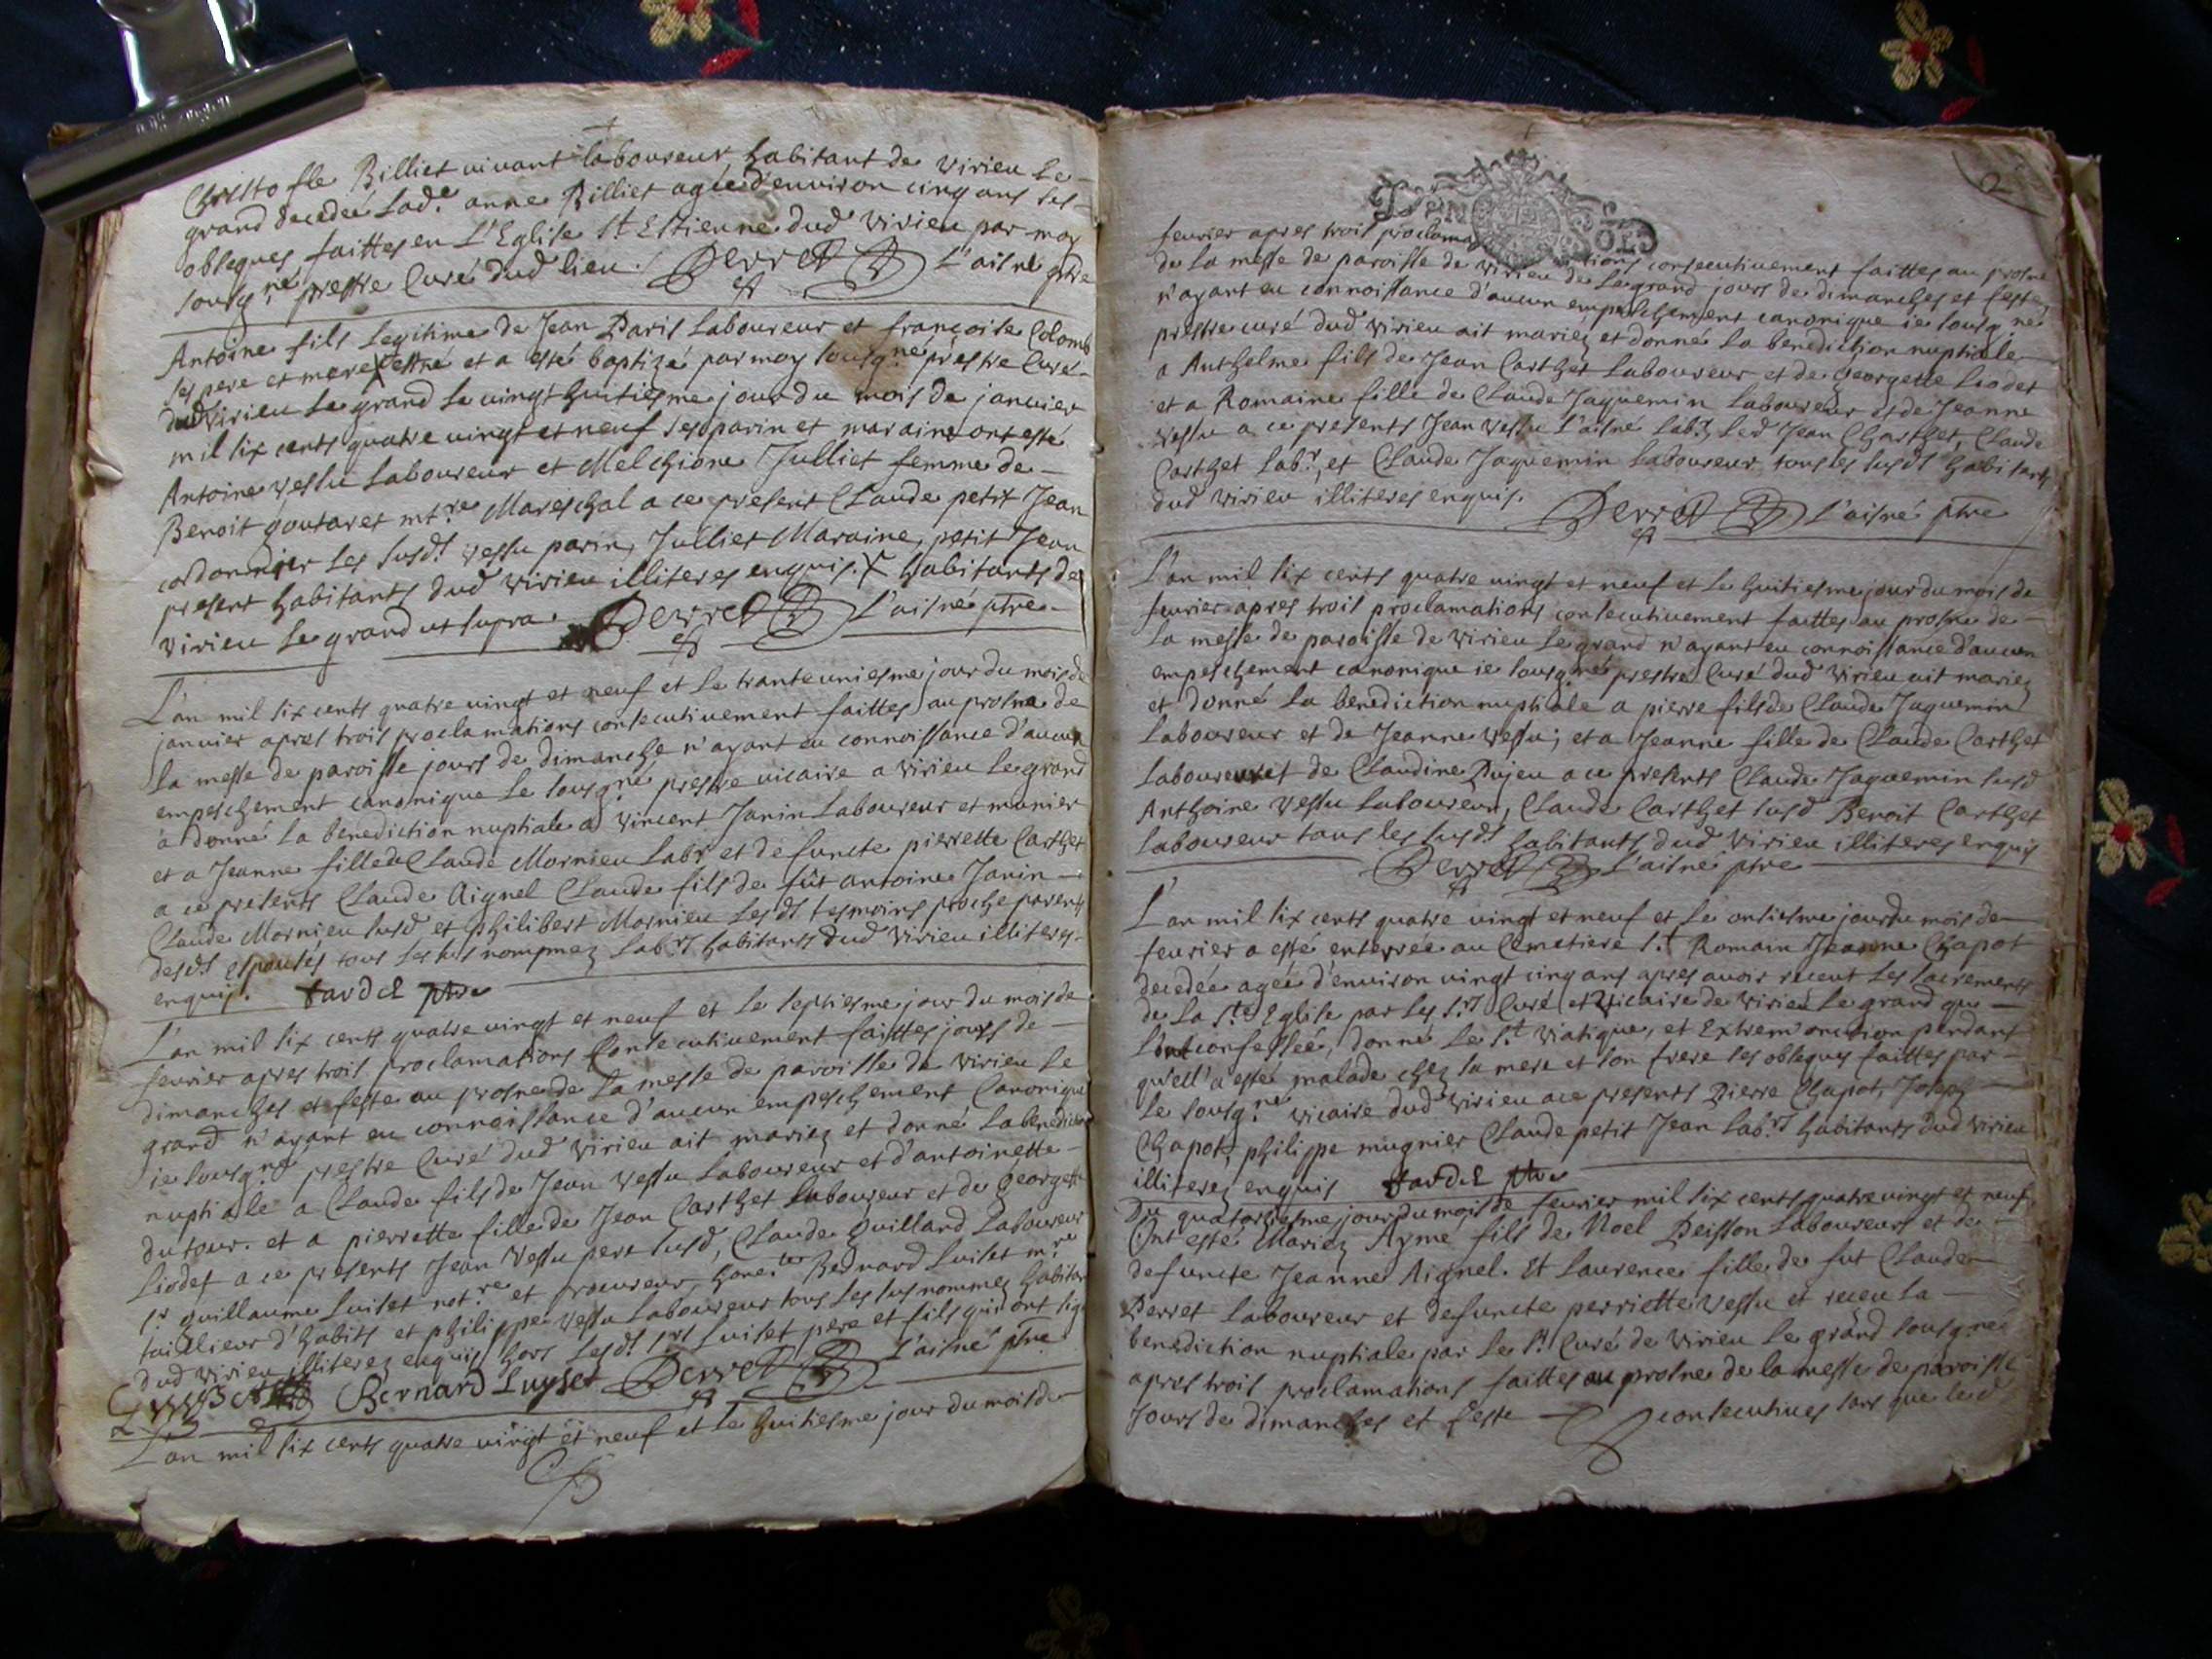 Christofle Billiet vivant laboureur habitant de virieu le
grand decedée lad.e anne Billiet agée d'environ cinq ans ses
obseques faittes en L'Eglise S.t Estienne dud virieu par moy
sousg.né prestre Curé dud lieu. Derret L'aisné ptre
Antoine fils legitime de Jean Paris laboureur et françoise Colomb
ses pere et mere X est né et a esté baptizé par moy sousg.né prestre Curé
dud Virieu le grand le vingt huitiesme jour du mois de janvier
mil six cents quatre vingt et neuf ses parin et maraine ont esté
Antoine vessu laboureur et Melchione Julliet femme de
Benoit goutaret mt.re Mareschal a ce present Claude petit Jean
cordonnier les susd.s vessu parin, Julliet Maraine, petit Jean
present habitants dud virieu illiteres enquis. X habitants de
virieu le grand ut supra. Derret L'aisné ptre
L'an mil six cents quatre vingt et neuf et le trante uniesme jour du mois de
janvier apres trois proclamations consecutivement faittes au prosne de
la messe de paroisse jours de dimanche n'ayant eu connoissance d'aucun
empeschement canonique le sousg.né prestre vicaire a virieu le grand
a donné la benediction nuptiale a vincent Janin Laboureur et munier
et a Jeanne fille de Claude Mornieu lab.r et defuncte pierrette Carthet
a ce presents Claude Aignel Claude fils de fût antoine Janin
Claude Mornieu susd et philibert Mornieu lesd.s tesmoins proche parents
desd.s Espousés tous les sus nommez lab.rs habitants dud virieu illiteres
enquis. tardel ptre
L'an mil six cents quatre vingt et neuf et le septiesme jour du mois de
fevrier apres trois proclamations Consecutivement faittes jours de
dimanches et feste au prosne de la messe de paroisse de virieu le
grand n'ayant eu connoissance d'aucun empeschement Canonique
ie sousg.né prestre Curé dud virieu ait mariez et donné la benediction
nuptiale a Claude fils de Jean vessu laboureur et d'antoinette
dutour. et a pierrette fille de Jean Carthet laboureur et de georgette
Liodet a ce presents Jean vessu pere susd, Claude guilland Laboureur
s.r guillaume luiset not.re et procureur, hon. Bernard luiset m.re
taillieur d'habits et philippe vessu laboureur tous les sus nommez habitans
dud virieu illiterez enquis hors lesd.s s.rs luiset pere et fils qui ont sig
Bernard Luyset Derret L'aisné ptre
L'an mil six cents quatre vingt et neuf et le huitiesme jour du mois de
2
DEN SOLS
fevrier apres trois proclamations consecutivement faittes au prosne
de la messe de paroisse de virieu le grand jours de dimanches et festes
n'ayant eu connoissance d'aucun empeschement canonique ie sousg.né
prestre curé dud virieu ait mariez et donné la benediction nuptiale
a Anthelme fils de Jean Carthet laboureur et de georgette Liodet
et a Romaine fille de Claude Jaquemin laboureur et de Jeanne
vessu a ce presents Jean vessu l'aisné lab.r, led Jean Charthet, Claude
Carthet lab.r, et Claude Jaquemin laboureur tous les susd.s habitants
dud virieu illiteres enquis. Derret L'aisné ptre
L'an mil six cents quatre vingt et neuf et le huitiesme jour du mois de
fevrier apres trois proclamations consecutivement faittes au prosne de
la messe de paroisse de virieu le grand n'ayant eu connoissance d'aucun
empeschement canonique ie sousg.né prestre Curé dud virieu ait mariez
et donné la benediction nuptiale a pierre fils de Claude Jaquemin
laboureur et de Jeanne vessu; et a Jeanne fille de Claude Carthet
laboureur et de Claudine Dujeu a ce presents Claude Jaquemin susd
Anthoine vessu laboureur, Claude Carthet susd Benoit Carthet
laboureur tous les susd.s habitants dud virieu illiteres enquis
Derret L'aisné ptre
L'an mil six cents quatre vingt et neuf et le onziesme jour du mois de
fevrier a esté enterrée au Cemetiere S.t Romain Jeanne Chapot
decedée agée d'environ vingt cinq ans apres avoir receut les sacrements
de la S.te Eglise par les S.rs Curé et vicaire de virieu le grand qui
l'ont confessée, donné le S.t viatique, et Extrem'onction pendant
qu'ell'a esté malade chez sa mere et son frere ses obseques faittes par
le sousg.né vicaire dud virieu a ce presents Pierre Chapot, Joseph
Chapot, philippe mugnier Claude petit Jean lab.rs habitants dud virieu
illiterez enquis tardel ptre
Du quatorziesme jour du mois de fevrier mil six cents quatre vingt et neuf
Ont esté Mariez Ayme fils de Noel Peisson laboureur et de
defuncte Jeanne Aignel. Et Laurence fille de fut Claude
Derret laboureur et defuncte perriette vessu et receu la
benediction nuptiale par le S.r Curé de virieu le grand sousg.né
apres trois proclamations faittes au prosne de la messe de paroisse
Jours de dimanches et feste consecutives sans que led